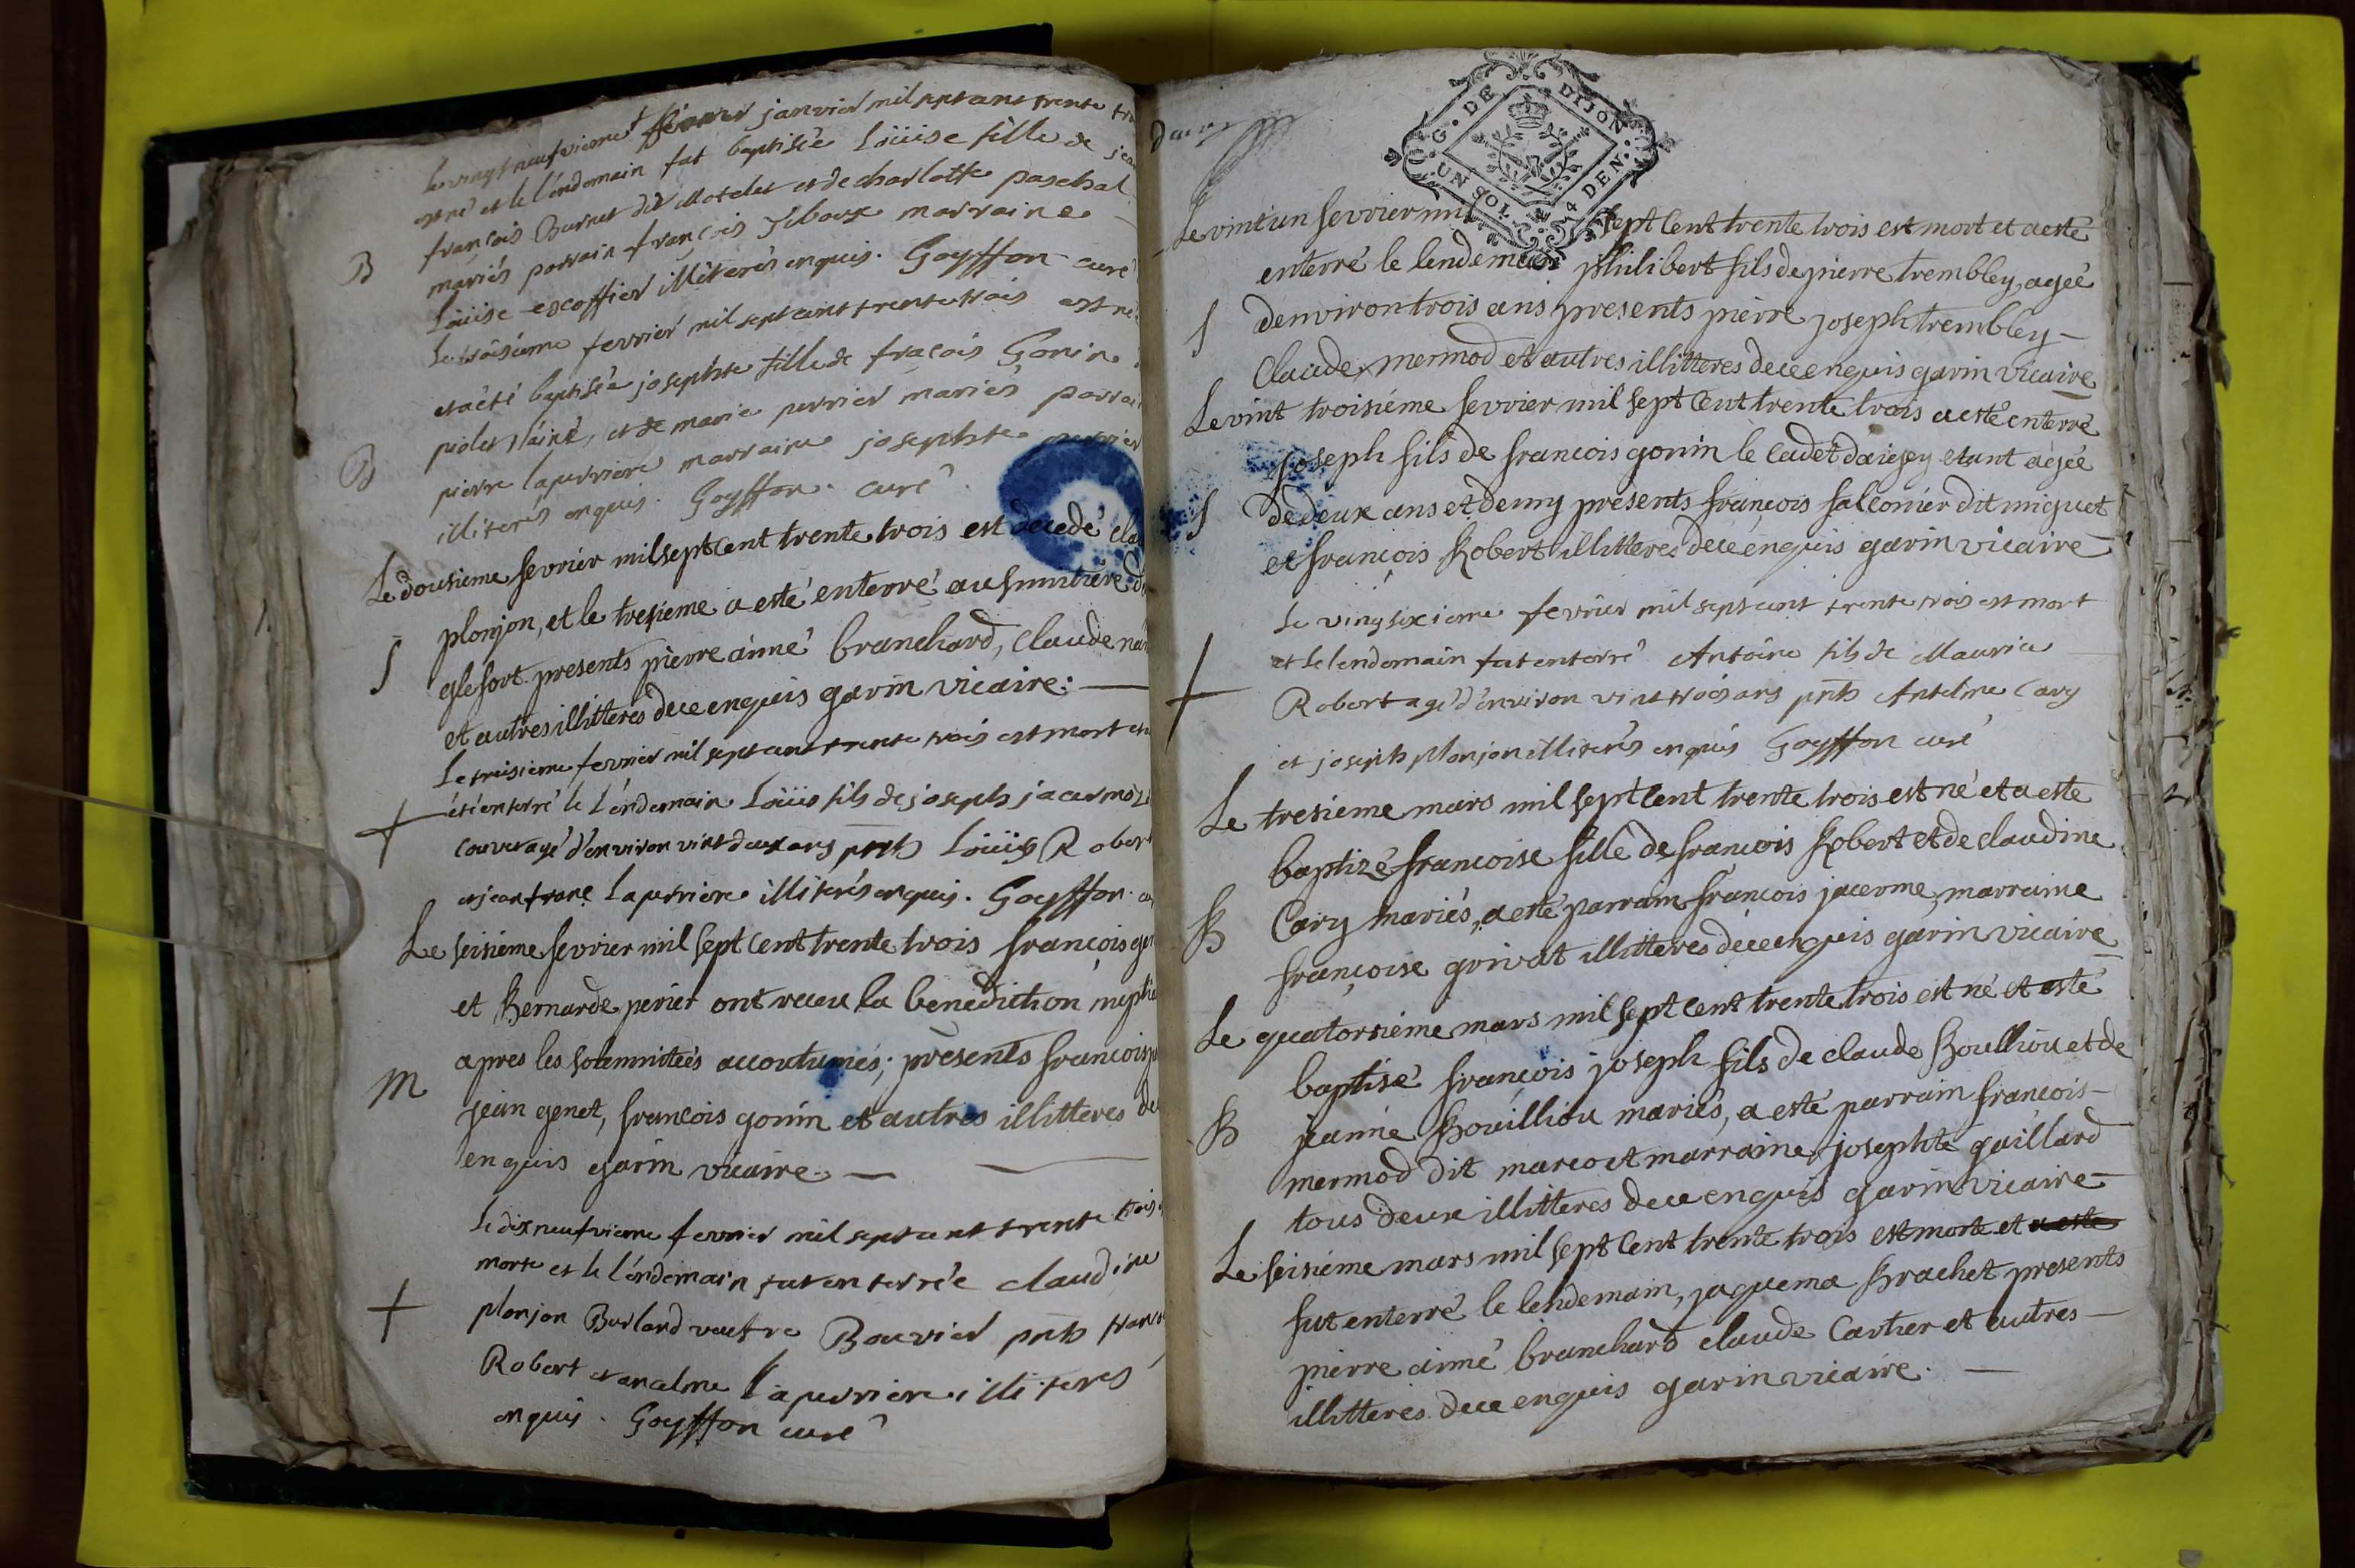 Le vingt neufvieme janvier mil sept cent trente
est né et le l'éndemain fut baptisée Loüise fille de
françois Burnet dit Motelet et de charlotte paschal
B
mariés parrain françois marraine
Loüise escoffier illiterés enquis. Goyffon curé
Le troisieme fevrier mil sept cent trente trois est né
et a été baptisée josephte fille de fraçois Gonin
piolet l'ainé, et de marie perrier mariés parrai
B
pierre laperriere marraine josephte perrier
illiterés enquis. Goyffon. curé
Le dousieme fevrier mil sept cent trente trois est decedé cla
plonjon, et le tresieme a esté enterré au simitiere
S
glefort presents pierre aimé branchard, claude
et autres illitteres de ce enquis garin vicaire.
Le treisieme fevrier mil sept cent trente trois est mort et
été enterré le l'éndemain Loüis fils de joseph jacermoz
couver agé d'environ vint deux ans pnts Loüis Robert
et jean franç laperriere illiterés enquis. Goyffon
Le seisiéme fevrier mil sept cent trente trois françois gen
et Bernarde perier ont receu la benediction nuptia
apres les solemnitées accoutumés; presents françois
M
jean genet, françois gonin et autres illitteres de
enquis garin vicaire.
Le dix neufvieme fevrier mil sept cent trente trois
morte et le l'éndemain fut enterrée claudine
plonjon Burland veufve Bouvier pnts franç
Robert et ancelme laperriere illiteres
enquis. Goyffon curé
G. DE DIJON
UN SOL 4 DEN.
Le vint un fevrier mil sept cent trente trois est mort et a esté
enterré le lendemain philibert fils de pierre trembley, agée
S
denviron trois ans presents pierre joseph trembley
Claude mermod et autres illitteres de ce enquis garin vicaire
Le vint troisiéme fevrier mil sept cent trente trois a esté enterré
joseph fils de francois gonin le cadet daigey etant agée
S
de deux ans et demy presents francois falconier dit miguet
et françois Robert illitteres de ce enquis garin vicaire
Le vingsixieme fevrier mil sept cent trente trois est mort
et le lendemain fut enterré Antoine fils de Maurice
Robert agé d'environ vint trois ans pnts Antelme Cary
et joseph plonjon illiterés enquis Goyffon curé
Le tresieme mars mil sept cent trente trois est né et a esté
baptizé francoise fille de francois Robert et de claudine
B
Cary mariés, a esté parrain françois jacerme, marraine
françoise grivat illitteres de ce enquis garin vicaire
Le quatorsiéme mars mil sept cent trente trois est né et esté
baptisé françois joseph fils de claude Boulliou et de
B
jeanne Bouilliou mariés, a esté parrain francois
mermod dit marco et marraine josephte gaillard
tous deux illitteres de ce enquis garin vicaire
Le seisiéme mars mil sept cent trente trois est morte et a esté
fut enterré le lendemain, jaquema Brachet presents
pierre aimé branchard claude Cartier et autres
illitteres de ce enquis garin vicaire.